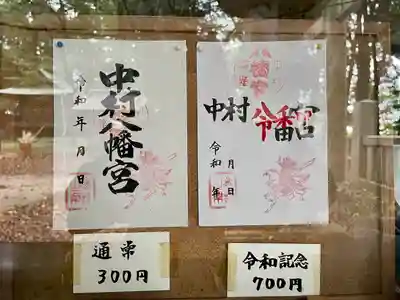 中村八幡宮
令和 年 月 日
八幡宮
中村 令 幡宮
令和 年 月 日
通常
300円
令和記念
700円